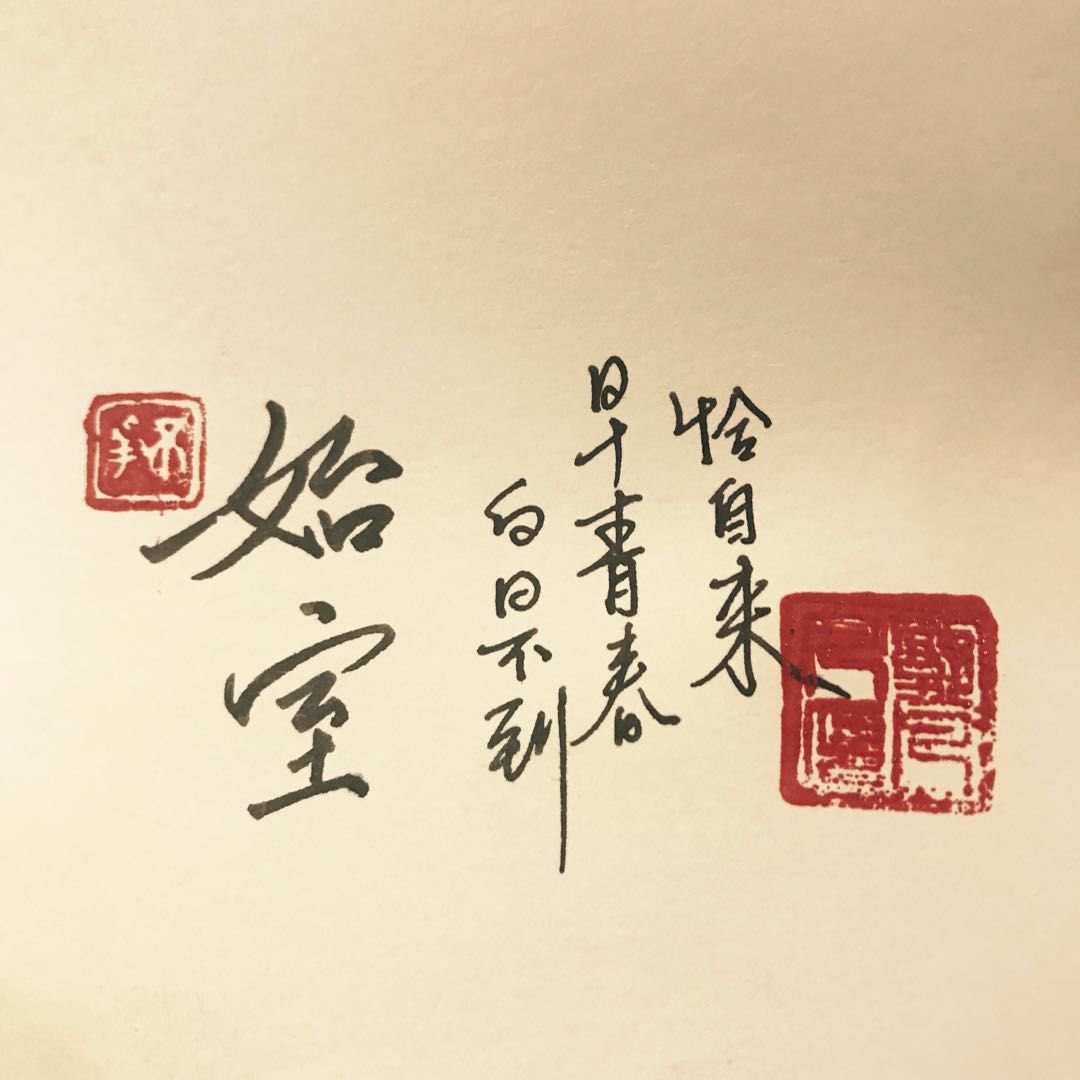 始室
白日不到
日十青春
恰自来